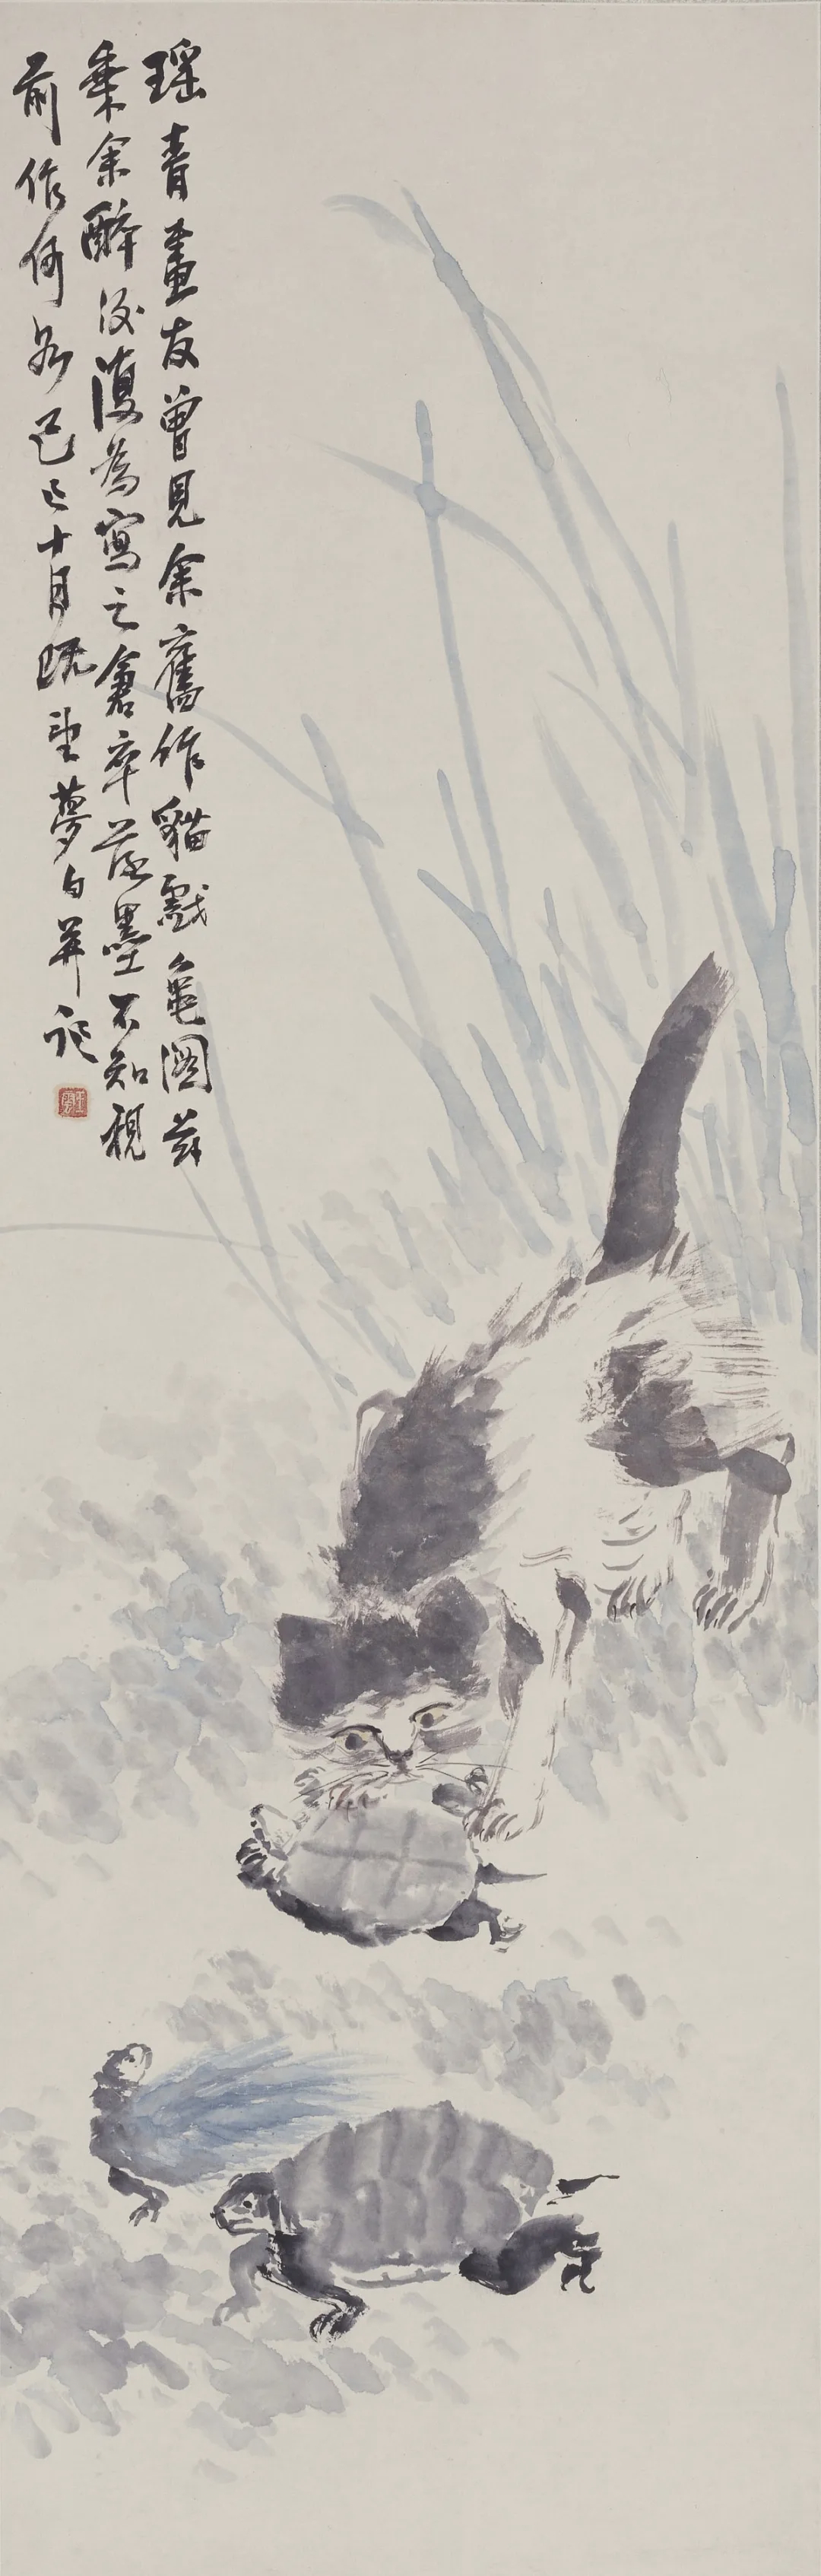 瑶青畫友曾見余舊作貓戲龜圖茲
乘余醉後復為寫之倉卒落墨不知視
前作何如己巳十月既望夢白并記
王雲